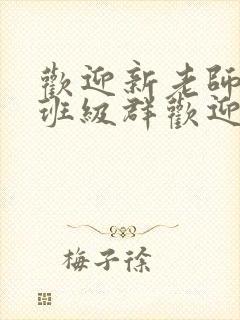 歡迎新老師
班級群歡迎
梅子徐